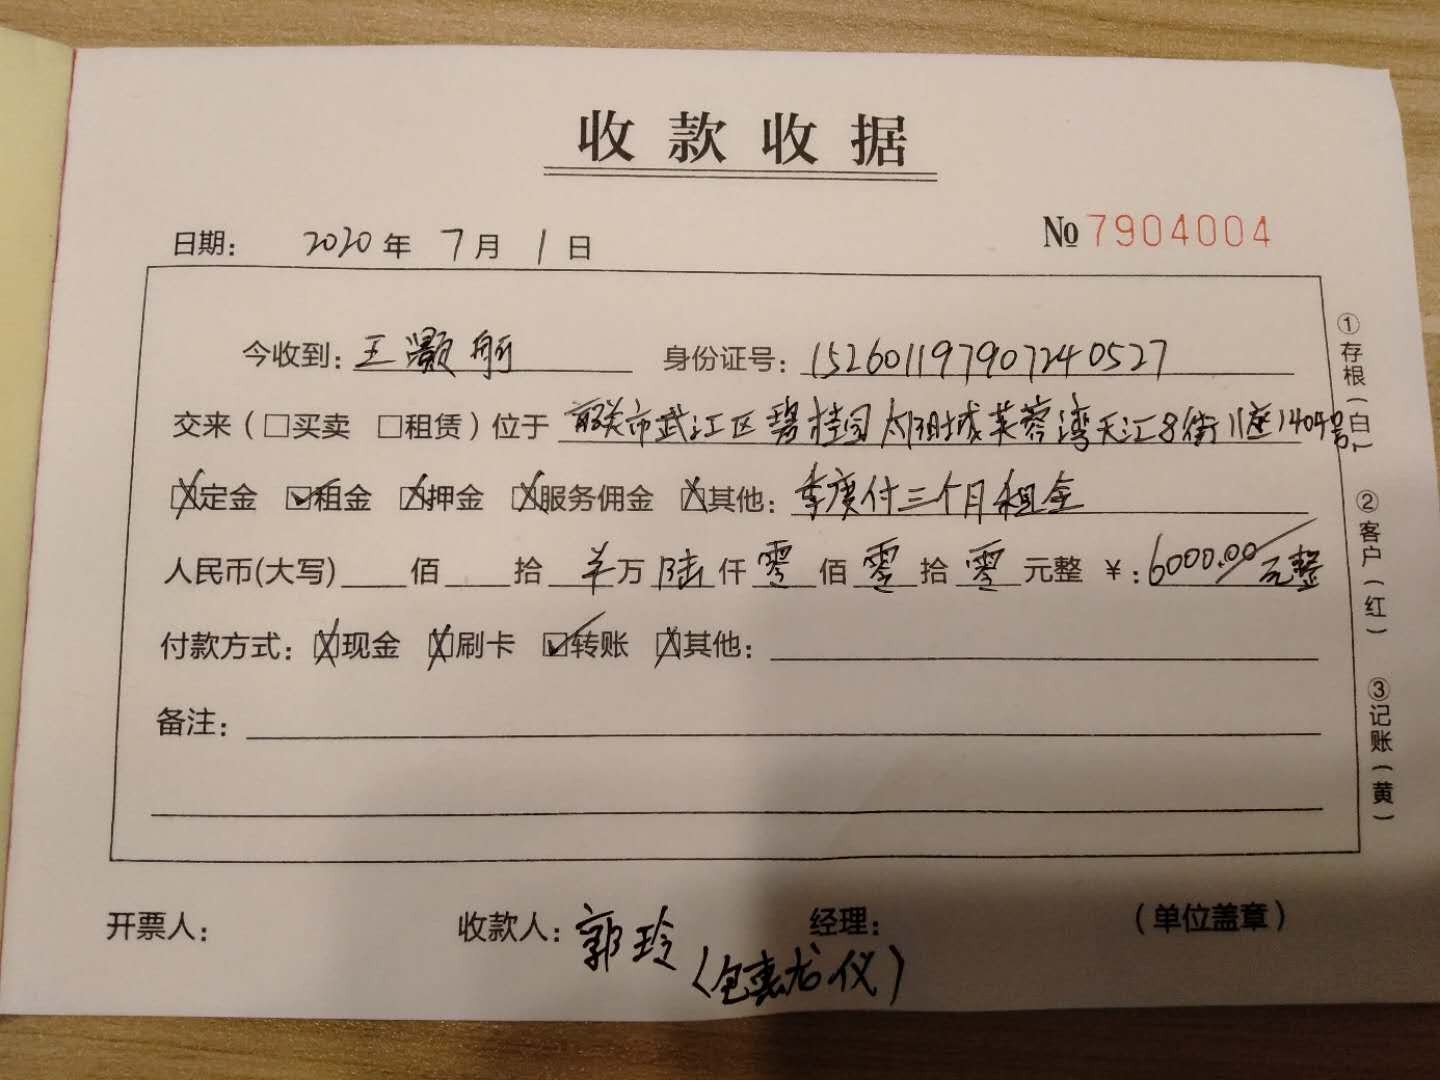 收款收据
日期： 2020 年 7 月 1 日 № 7904004
今收到：王灏 身份证号：152601197907240527
交来（□买卖 □租赁）位于 韶关市武江区碧桂园太阳城芙蓉湾天汇8街11座1404号
☒定金 ☑租金 ☒押金 ☒服务佣金 ☒其他：季度付三个月租金
人民币(大写) 佰 拾 万 陆 仟 零 佰 零 拾 零 元整 ￥：6000.00 元整
付款方式：☒现金 ☒刷卡 ☑转账 ☒其他：
备注：
开票人： 收款人：郭玲 经理： （单位盖章）
仪）
①存根（白）
②客户（红）
③记账（黄）